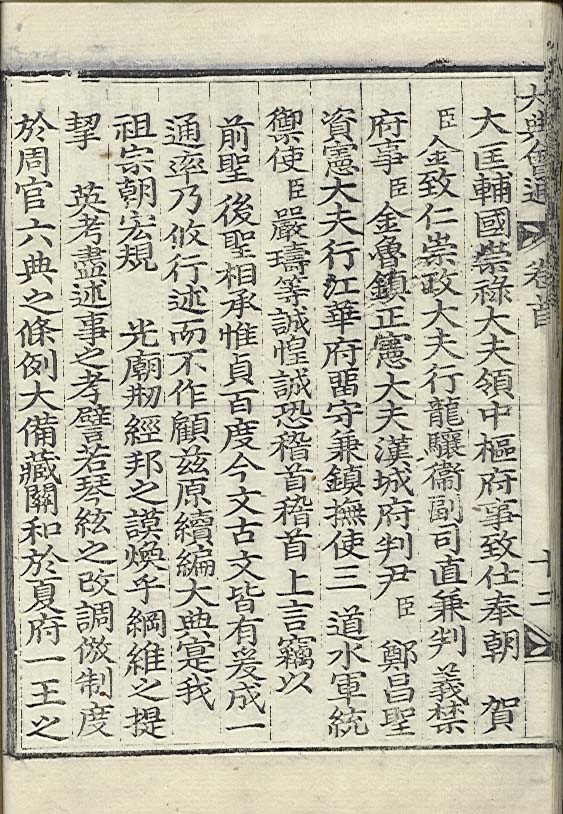 大典會通 卷首 十二
大匡輔國崇祿大夫領中樞府事致仕奉朝 賀
臣金致仁崇政大夫行龍驤衛副司直兼判 義禁
府事臣金魯鎮正憲大夫漢城府判尹臣 鄭昌聖
資憲大夫行江華府留守兼鎮撫使三 道水軍統
禦使臣嚴璹等誠惶誠恐稽首稽首上言竊以
前聖後聖相承惟貞百度今文古文皆有爰成一
通率乃攸行述而不作顧茲原續編大典寔我
祖宗朝宏規 光廟刱經邦之謨煥乎綱維之提
挈 英考盡述事之孝譬若琴絃之改調倣制度
於周官六典之條例大備藏關和於夏府一王之